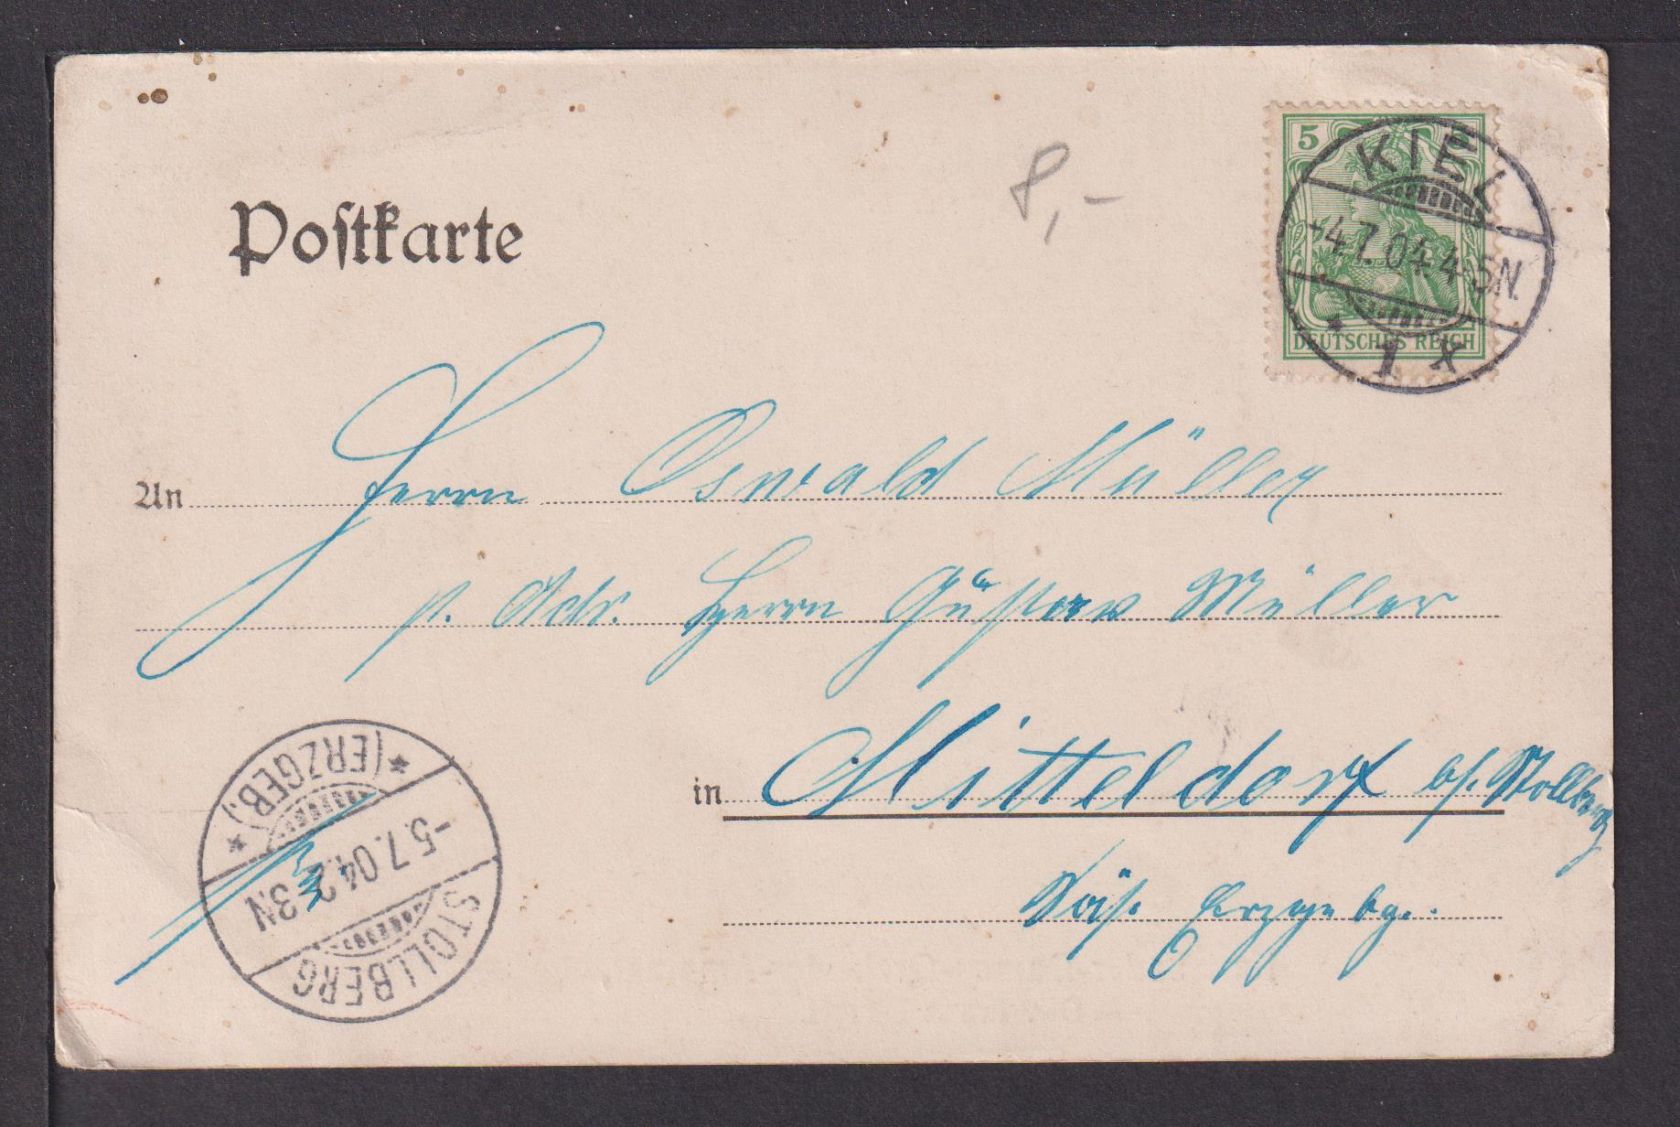 Postkarte
8,-
5
DEUTSCHES REICH
KIEL
4.7.04.4-5N.
* 1 x
An Herrn Oswald Müller
p. Adr. Herrn Gustav Müller
in Mitteldorf b/. Stollberg
Erzgebg.
STOLLBERG
-5.7.04.2-3N
* (ERZGEB.) *